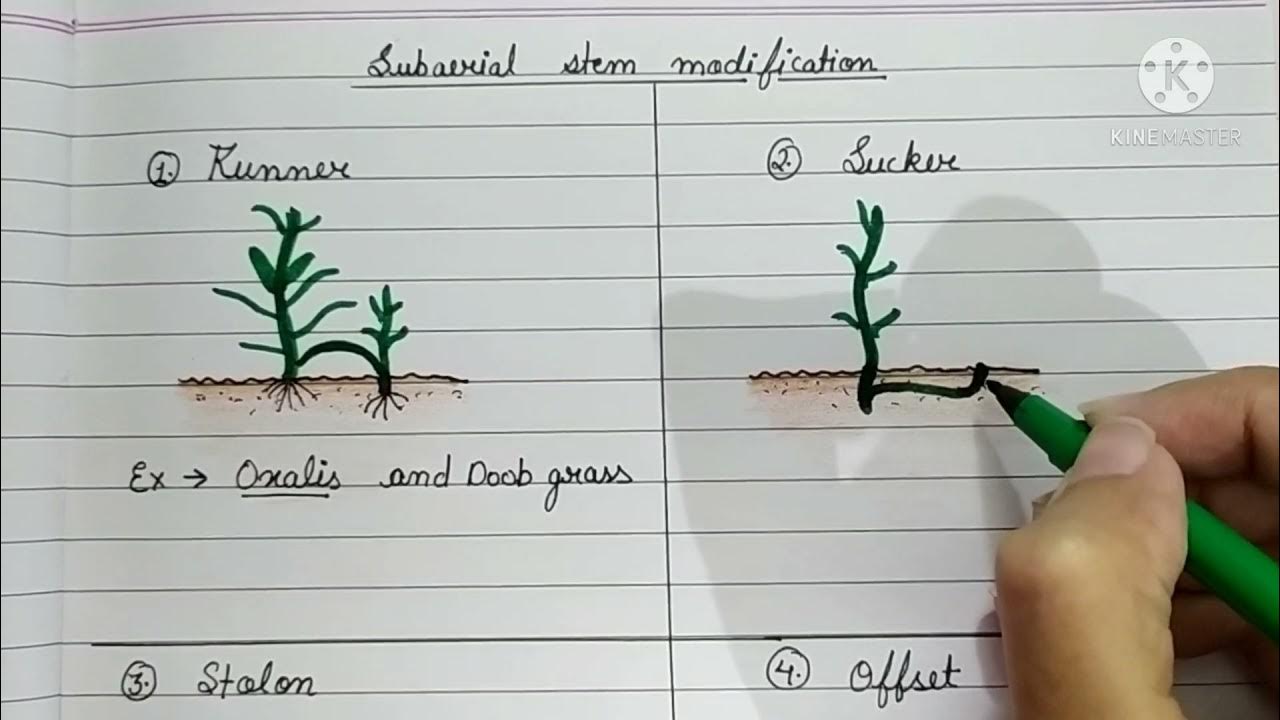 Subaerial stem modification
K
KINEMASTER
1. Runner
2. Sucker
Ex → Oxalis and Doob grass
3. Stolon
4. Offset